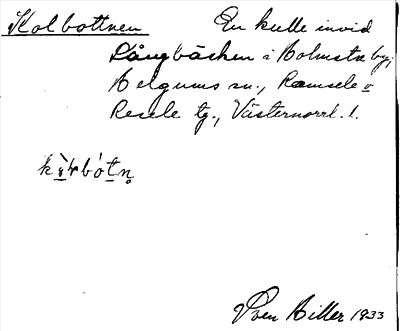 Kolbottnen
En kulle invid
Långbäcken i Holmstr. by,
Helgums sn., Ramsele o
Resele tg., Västernorrl. l.
Sven Hiller 1933